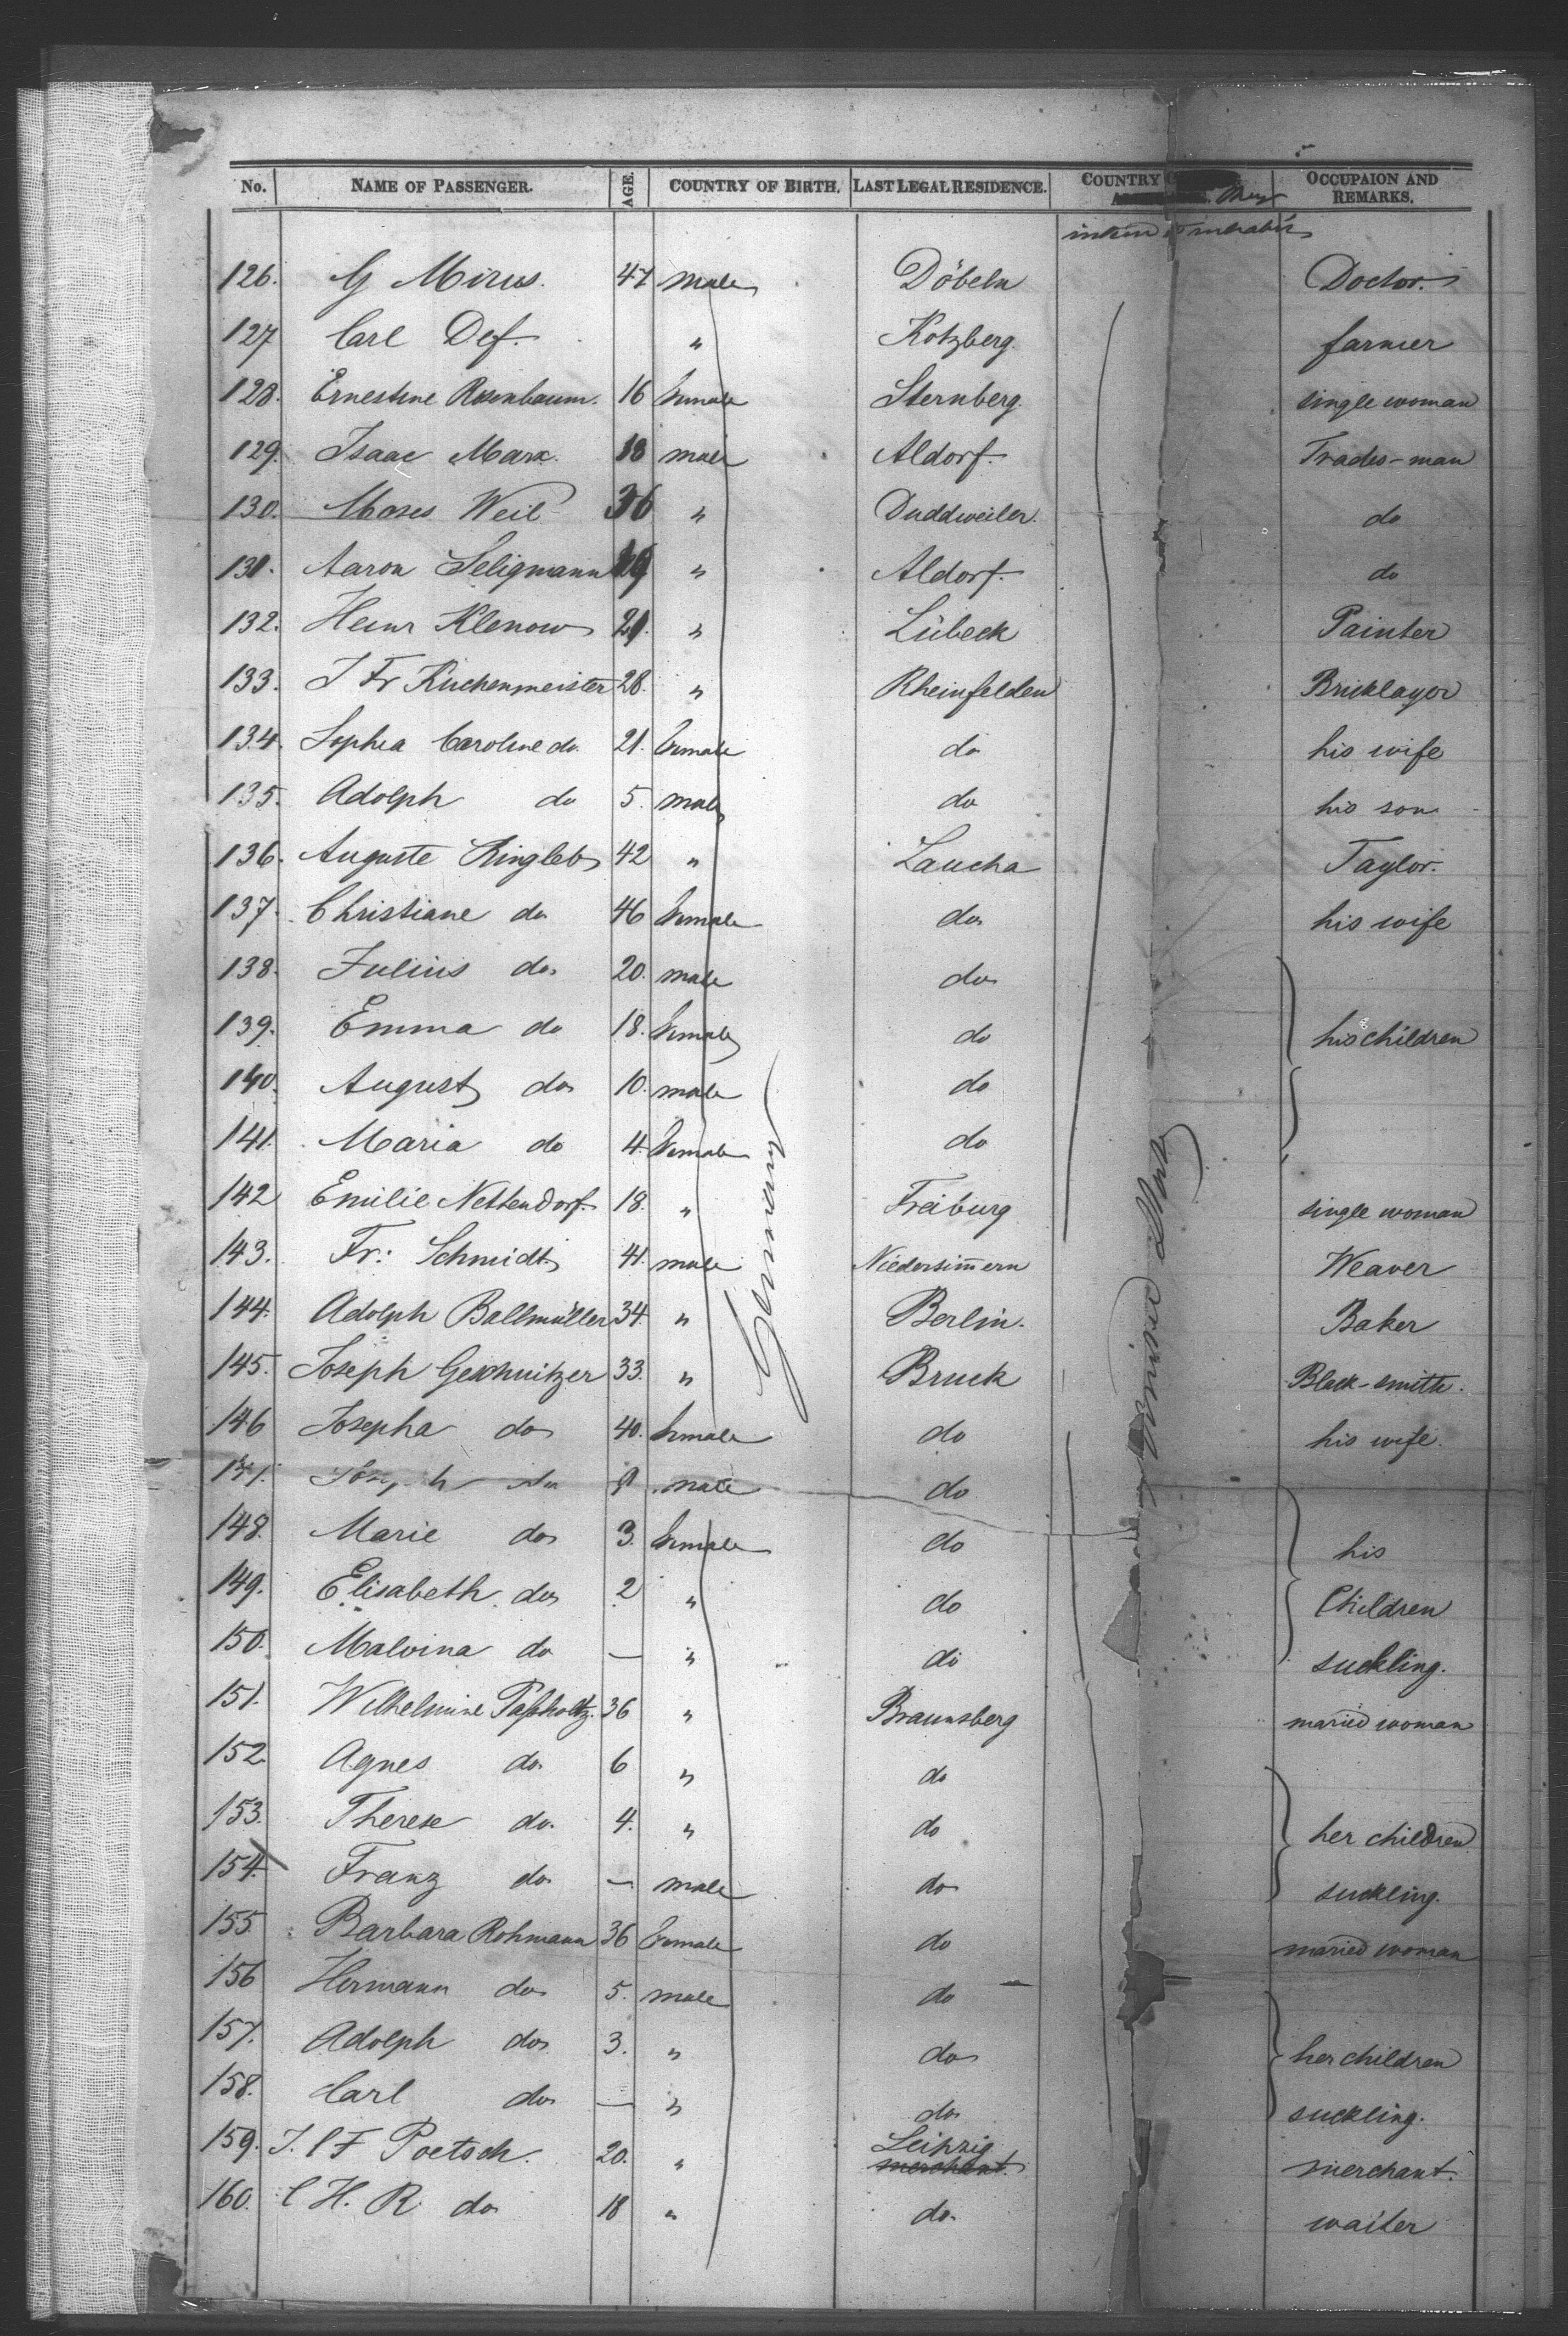 No. NAME OF PASSENGER. AGE. COUNTRY OF BIRTH. LAST LEGAL RESIDENCE. COUNTRY they OCCUPAION AND REMARKS.
intend to inhabit
126. G Mirus. 47 male Döbeln Doctor.
127 Carl Def. " Kotzberg. farmer
128. Ernestine Rosenbaum. 16 female Sternberg. single woman
129. Isaac Marx. 18 male Aldorf. Trades-man
130. Moses Weil 36 " Duddweiler. do
131. Aaron Seligmann " Aldorf. do
132. Heinr Klenow 29. " Lübeck Painter
133. J Fr Kuchenmeister 28. " Rheinfelden Bricklayor
134. Sophia Caroline do 21. female do his wife
135. Adolph do 5. male do his son
136. Auguste Ringleb 42 " Laucha Taylor.
137. Christiane do 46 female do his wife
138. Julius do 20. male do
139. Emma do 18. female do his children
140. August do 10. male do
141. Maria do 4. female do
142 Emilie Nettendorf. 18. " Freiburg single woman
143. Fr: Schmidt 41. male Niedersim̅ern Weaver
144. Adolph Ballmüller 34. " Berlin. Baker
145. Joseph Geschnitzer 33. " Bruck Black-smith.
146 Josepha do 40. female do his wife.
147. Joseph do 9 male do
148. Marie do 3. female do his
149. Elisabeth do 2 " do Children
150. Malvina do — " do suckling.
151. Wilhelmine Paßholtz. 36 " Braunsberg maried woman
152. Agnes do 6 " do
153. Therese do. 4. " do her children
154. Franz do — male do suckling.
155 Barbara Rohmann 36 female do maried woman
156 Hermann do 5. male do
157. Adolph do 3. " do her children
158. Carl do — " do suckling.
159. J. C F Poetsch. 20. " Leipzig merchant. merchant.
160. C H. R. do 18 " do. waiter
Germany
United States